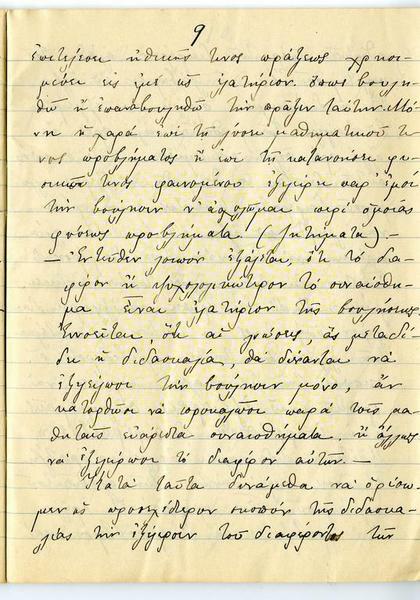 9
ἐπιτέλεσις ἠθικῆς τινος πράξεως χρησι-
μεύει εἰς ἐμὲ ὡς ἐλατήριον ὅπως βουλη-
θῶ ἢ ἐπαναβουληθῶ τὴν πρᾶξιν ταύτην. Μό-
νη ἡ χαρὰ ἐπὶ τῇ λύσει μαθηματικοῦ τι-
νος προβλήματος ἢ ἐπὶ τῇ κατανοήσει φυ-
σικοῦ τινος φαινομένου ἐξεγείρει παρ' ἐμοὶ
τὴν βούλησιν ν' ἀσχολῶμαι περὶ ὁμοίας
φύσεως προβλήματα (ζητήματα).—
— Ἐντεῦθεν λοιπὸν ἐξάγεται, ὅτι τὸ δια-
φέρον ἢ ψυχολογικώτερον τὸ συναίσθη-
μα εἶναι ἐλατήριον τῆς βουλήσεως.
Ἐννοεῖται, ὅτι αἱ γνώσεις, ἃς μεταδί-
δει ἡ διδασκαλία, θὰ δύνανται νὰ
ἐξεγείρωσι τὴν βούλησιν μόνον, ἂν
κατορθῶσι νὰ προκαλῶσι παρὰ τοῖς μα-
θηταῖς εὐάρεστα συναισθήματα ἢ ἄλλως
νὰ ἐξεγείρωσι τὸ διαφέρον αὐτῶν.—
Κατὰ ταῦτα δυνάμεθα νὰ ὁρίσω-
μεν ὡς προσεχέστερον σκοπὸν τῆς διδασκα-
λίας τὴν ἐξέγερσιν τοῦ διαφέροντος τῶν